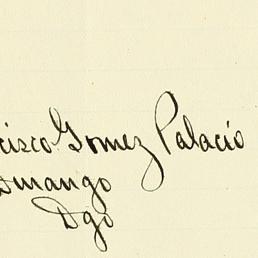 cisco Gomez Palacio
Durango
Dgo